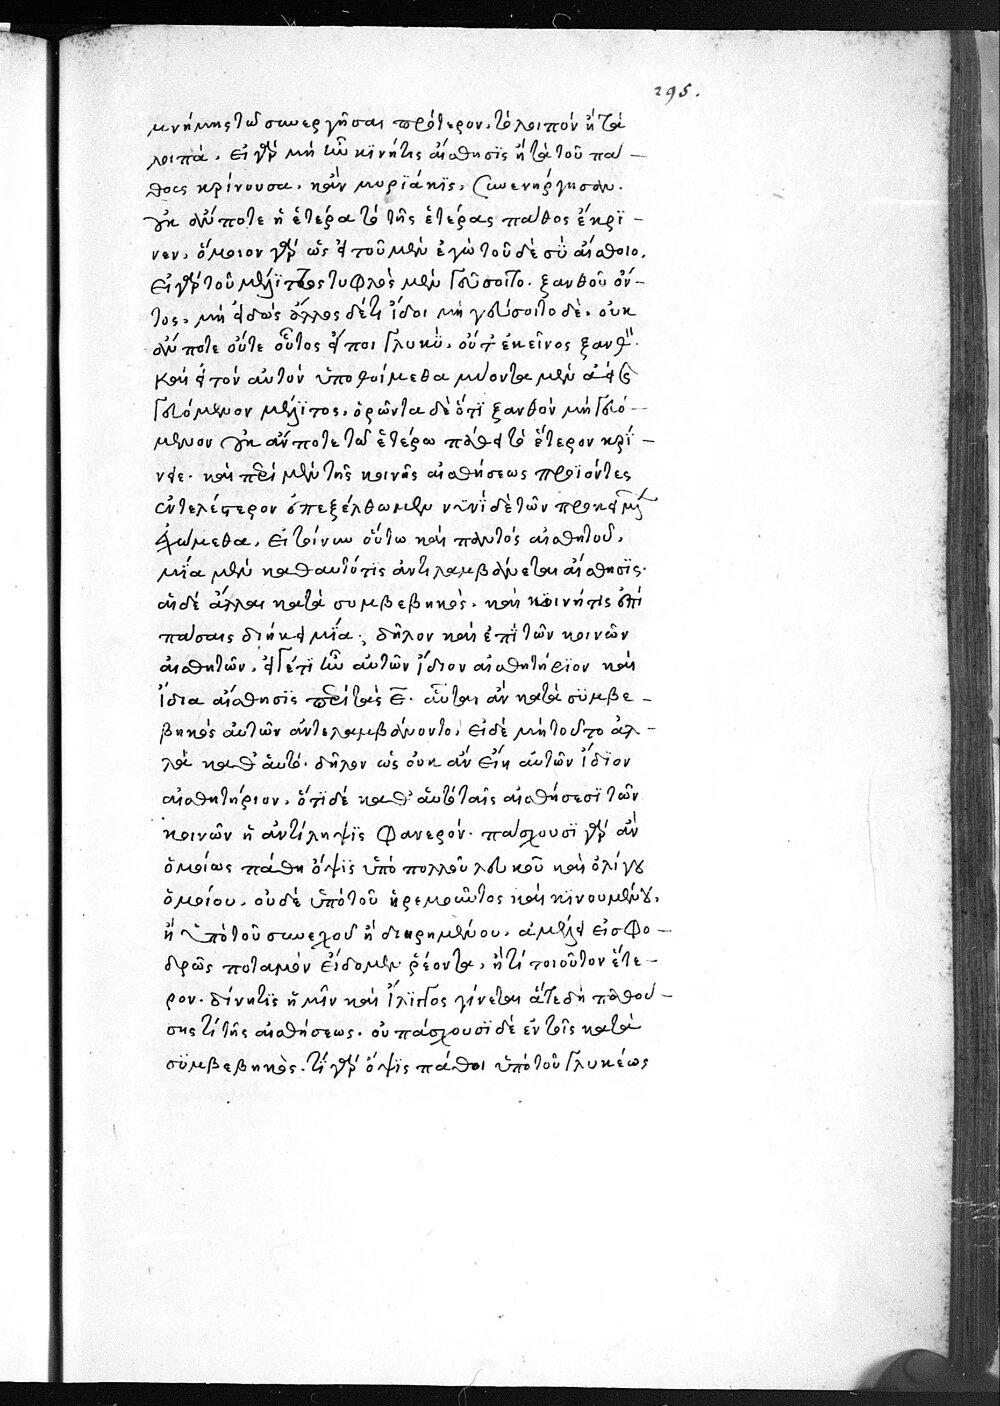 295.
μνήμης τῶ συνεργῆσαι πρότερον, τὸ λοιπὸν ἢ τὰ
λοιπά. εἰ γὰρ μὴ ἦν κϊνή τις αἴσθησϊς ἡ τὰ τοῦ πά-
θους κρίνουσα, κἂν μυρϊάκϊς, συνενήργησαν.
οὐκ ἄν ποτε ἡ ἑτέρα τὸ τῆς ἑτέρας πάθος ἔκρϊ-
νεν, ὅμοιον γὰρ ὡς εἰ τοῦ μὲν ἐγὼ τοῦ δὲ σὺ αἴσθοιο.
εἰ γὰρ τοῦ μέλϊτος τυφλὸς μὲν γεύσοιτο. ξανθοῦ ὄν-
τος, μὴ εἰδὼς ἄλλος δέ τι ἴδοι μὴ γεύσοιτο δὲ, οὐκ
ἄν ποτε οὔτε οὗτος εἴποι γλυκὺ, οὔτ' ἐκεῖνος ξανθὸν.
καὶ εἰ τὸν αὐτὸν ὑποθοίμεθα μύοντα μὲν ἀεὶ
γευόμενον μέλϊτος, ὁρῶντα δὲ ὅτϊ ξανθὸν μὴ γευό-
μενον οὐκ ἄν ποτε τῶ ἑτέρω πάθει τὸ ἕτερον κρί-
νειε. καὶ περὶ μὲν τῆς κοινῆς αἰσθήσεως προϊόντες
ἐντελέστερον ἐπεξέλθωμεν νυνὶ δὲ τῶν προκειμένων
ἐχώμεθα. εἰ τοίνυν οὕτω καὶ παντὸς αἰσθητοῦ,
μία μὲν καθ αὑτό τις ἀντιλαμβάνεται αἴσθησϊς.
αἱ δὲ ἄλλαι κατὰ συμβεβηκὸς. καὶ κοινή τις ἐπὶ
πάσαις διήκει μία. δῆλον καὶ ἐπὶ τῶν κοινῶν
αἰσθητῶν. εἴ γέ τι ἦν αὐτῶν ἴδιον αἰσθητήρϊον καὶ
ἰδία αἴσθησϊς παρὰ τὰς ε̄. αὗται ἂν κατὰ συμβε-
βηκὸς αὐτῶν ἀντελαμβάνοντο, εἰ δὲ μὴ τοῦτο ἀλ-
λὰ καθ' αὑτό. δῆλον ὡς οὐκ ἂν εἴη αὐτῶν ἴδϊον
αἰσθητήριον. ὅτϊ δὲ καθ' αὑτὸ ταῖς αἰσθήσεσϊ τῶν
κοινῶν ἡ ἀντίληψϊς φανερόν. πάσχουσϊ γὰρ ἂν
ὁμοίως πάθη ὄψϊς ὑπὸ πολλοῦ λευκοῦ καὶ ὀλίγου
ὁμοίου. οὐδὲ ὑπὸ τοῦ ἠρεμοῦντος καὶ κϊνουμένου,
ἢ ὑπὸ τοῦ συνεχοῦ ἢ διῃρημένου. ἀμέλει εἰ σφο-
δρῶς ποταμὸν εἴδομεν ῥέοντα, ἤ τι τοιοῦτον ἕτε-
ρον. δίνη τϊς ἡμῖν καὶ ἴλϊγγος γίνεται ἅτε δὴ παθού-
σης τι τῆς αἰσθήσεως. οὐ πάσχουσϊ δὲ ἐν τοῖς κατὰ
συμβεβηκὸς. τί γὰρ ὄψϊς πάθοι ὑπὸ τοῦ γλυκέως